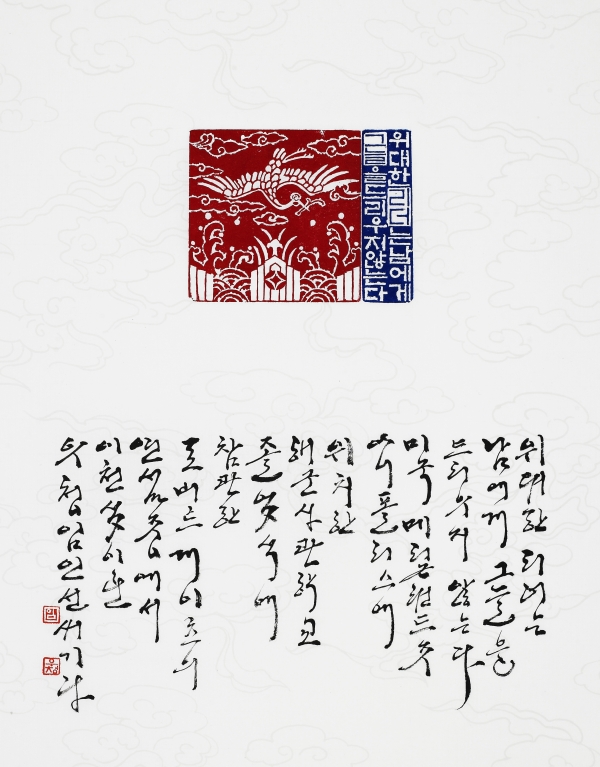 위대한리더는남에게
그늘을드리우지않는다
위대한 리더는
남에게 그늘을
드리우지 않는다
미국 메릴랜드 주
애나폴리스에
위치한
해군사관학교
졸업식에
참관한
로버트 게이츠의
연설 중에서
이천
임인선